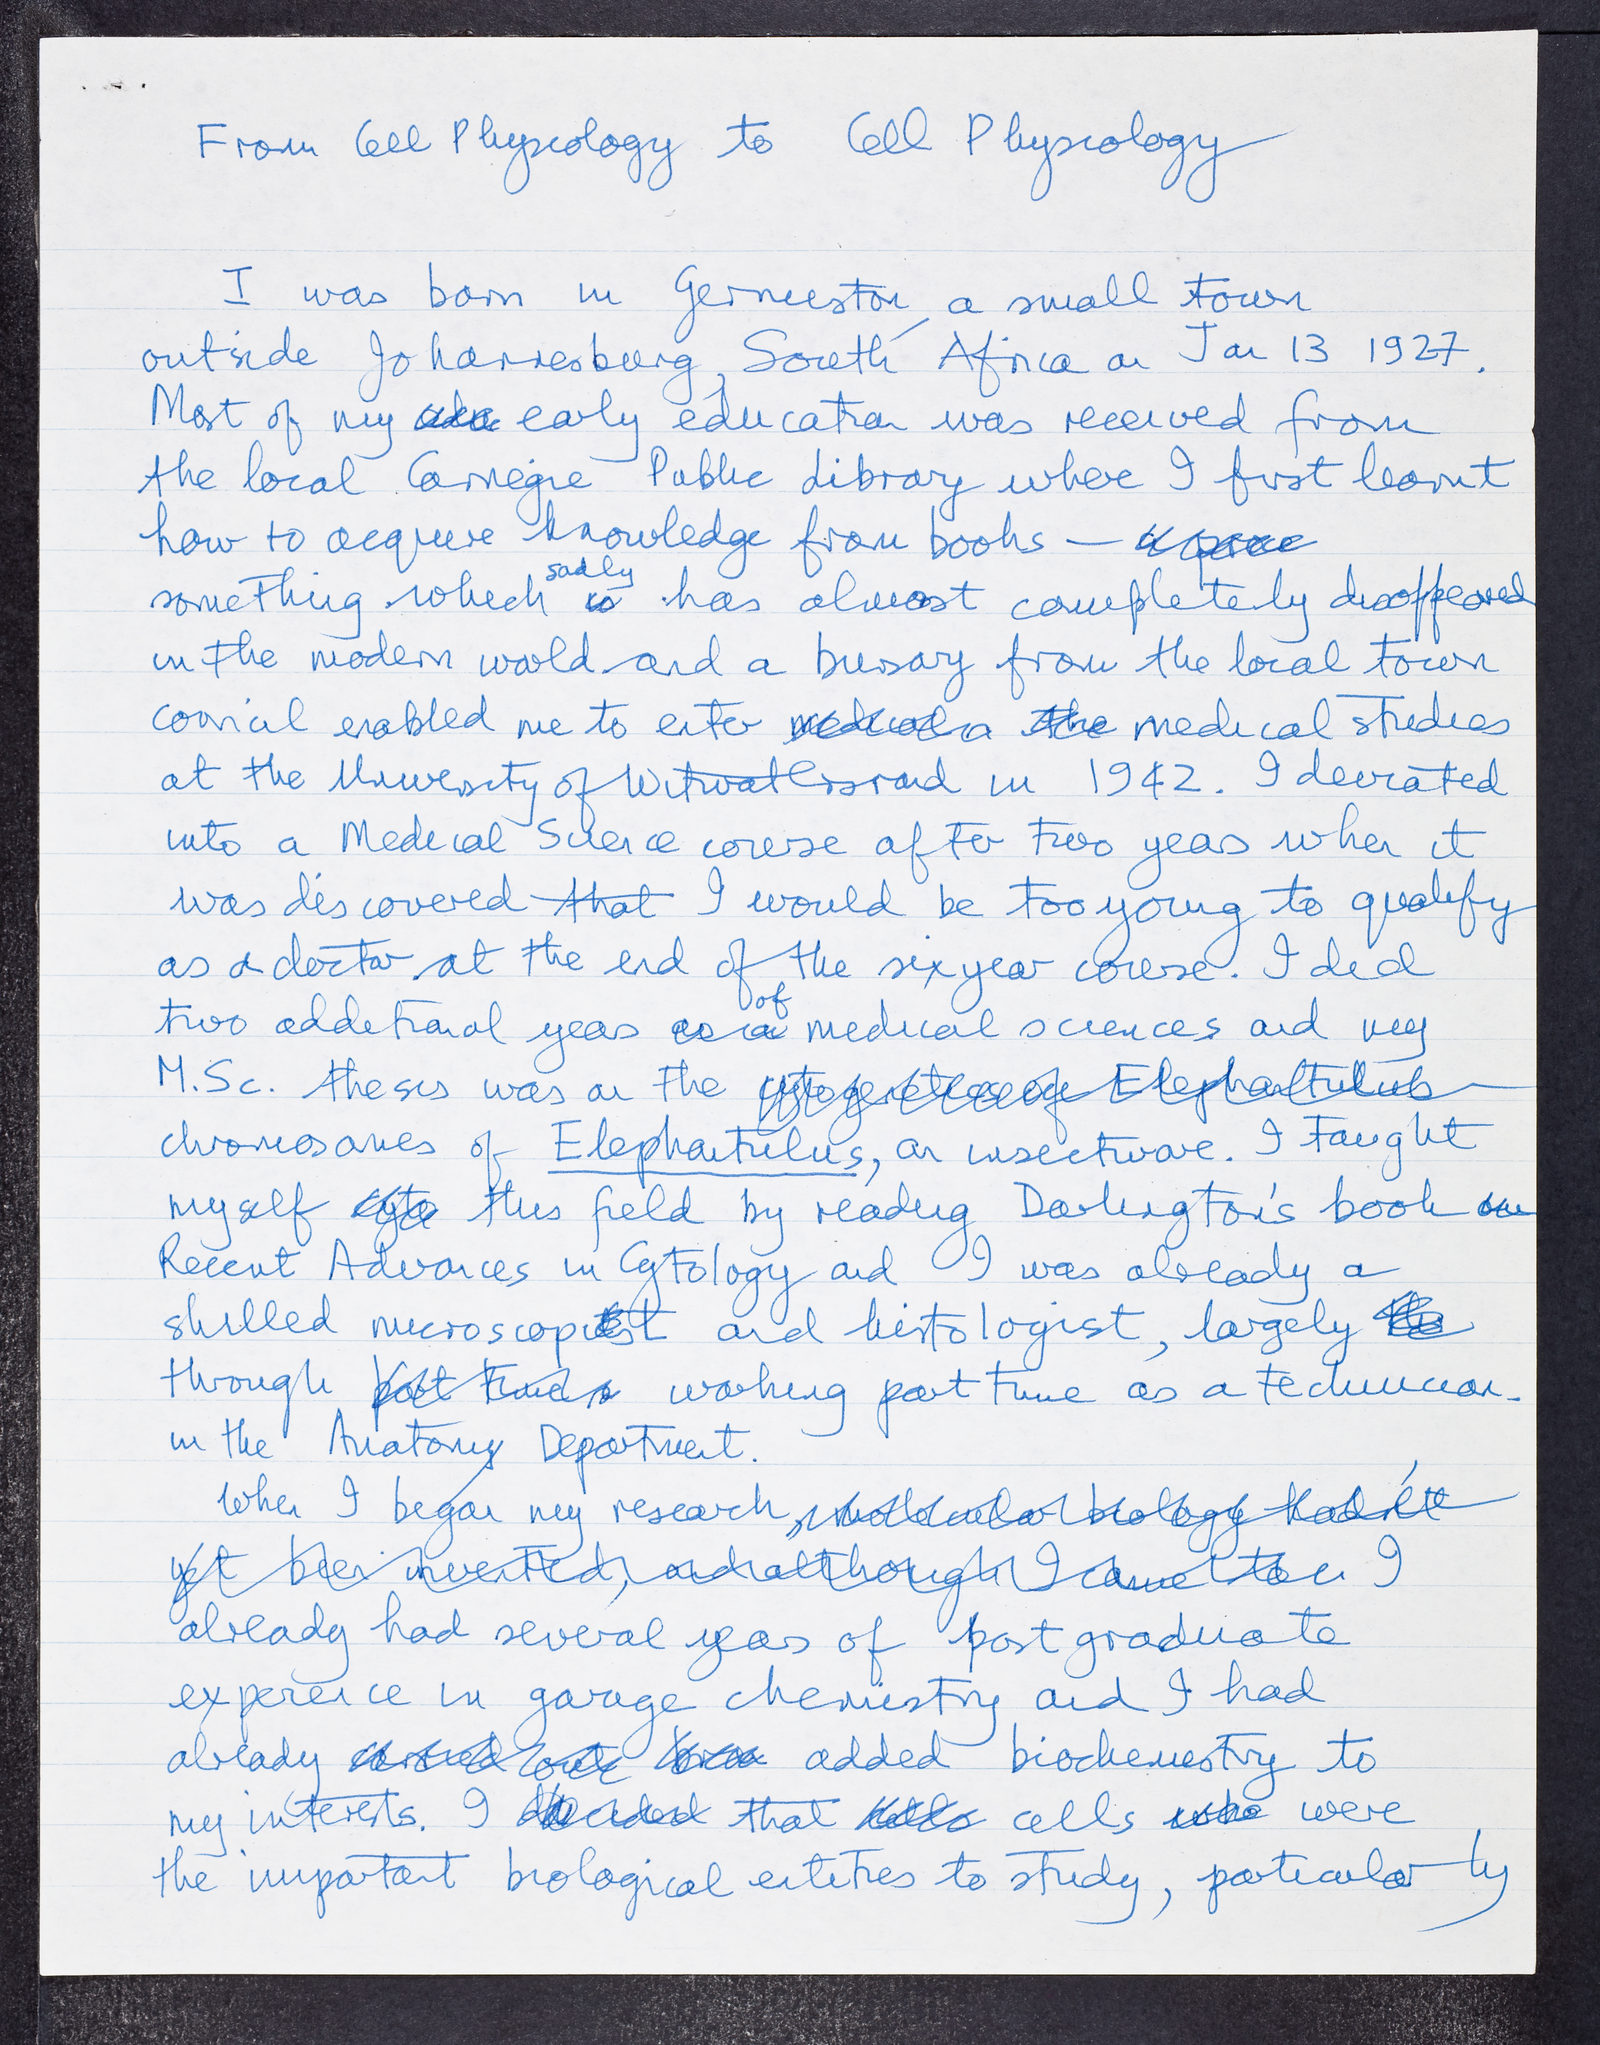 From Cell Physiology to Cell Physiology
I was born in Germiston, a small town
outside Johannesburg, South Africa on Jan 13 1927.
Most of my early education was received from
the local Carnegie Public Library where I first learnt
how to acquire knowledge from books —
sadly
something which is has almost completely disappeared
in the modern world and a bursary from the local town
council enabled me to enter medical a the medical studies
at the University of Witwatersrand in 1942. I deviated
into a Medical Science course after two years when it
was discovered that I would be too young to qualify
as a doctor at the end of the six year course. I did
of
two additional years as a medical sciences and my
M.Sc. thesis was on the cytogenetics of Elephantulus
chromosomes of Elephantulus, an insectivore. I taught
myself cyto this field by reading Darlington's book on
Recent Advances in Cytology and I was already a
skilled microscopist and histologist, largely
through part time working part time as a technician
in the Anatomy Department.
When I began my research, molecular biology hadn't
yet been invented, and although I came to I
already had several years of postgraduate
experience in garage chemistry and I had
already carried out added biochemistry to
my interests. I decided that cells cells who were
the important biological entities to study, particularly